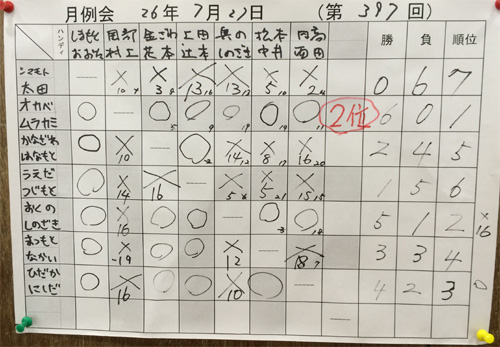 月例会 26年7月27日 (第397回)
ハンディ しまもと おおた 岡部 村上 金ざわ 花本 上田 辻本 奥の しのざき 松本 中井 日高 西田 勝 負 順位
シマモト 太田 × 10 × 3 × 13 × 13 × 5 10 × 2 0 6 7
オカベ ムラカミ ○ ○ 5 ○ 9 ○ 19 ○ 19 ○ 11 2位 6 0 1
かなざわ はなもと ○ × 10 ○ 2 × 14 12 × 8 17 × 16 20 2 4 5
うえだ つじもと ○ × 14 × 16 × 5 × 5 21 × 15 15 1 5 6
おくの しのざき ○ × 16 ○ ○ ○ 3 ○ 18 5 1 2 × 16
まつもと なかい ○ × -19 ○ ○ × 12 × 18 7 3 3 4
ひだか にしだ ○ × 16 ○ ○ × 10 ○ 4 2 3